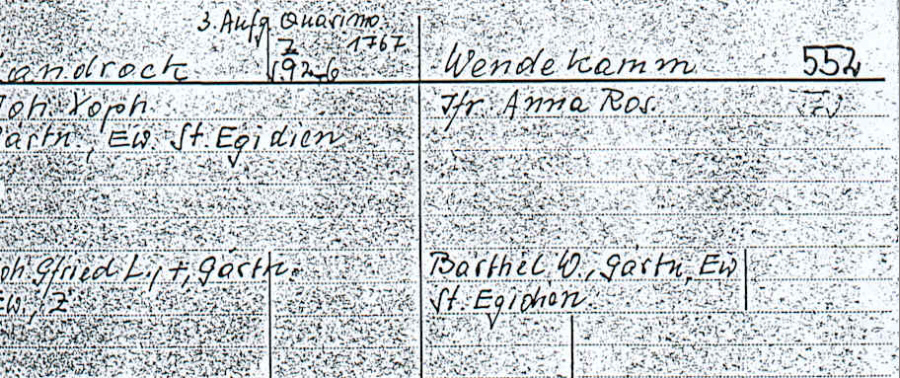 3. Aufg Quasimo.
Z 1767
androck 92-6 Wendekamm 552
oh. Xoph. Jfr. Anna Ros.
artn., Ew. St. Egidien
oh. Gfried L., +, Gärtn. Barthel W., Gärtn, Ew
Ew, Z St. Egidien